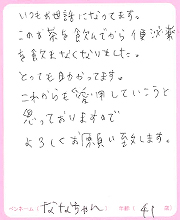 いつもお世話になってます。
このお茶を飲んでから便泌薬
を飲まなくなりました。
とっても助かってます。
これからも愛用していこうと
思っておりますので
よろしくお願い致します。
ペンネーム（ななちゃん）年齢（41歳）